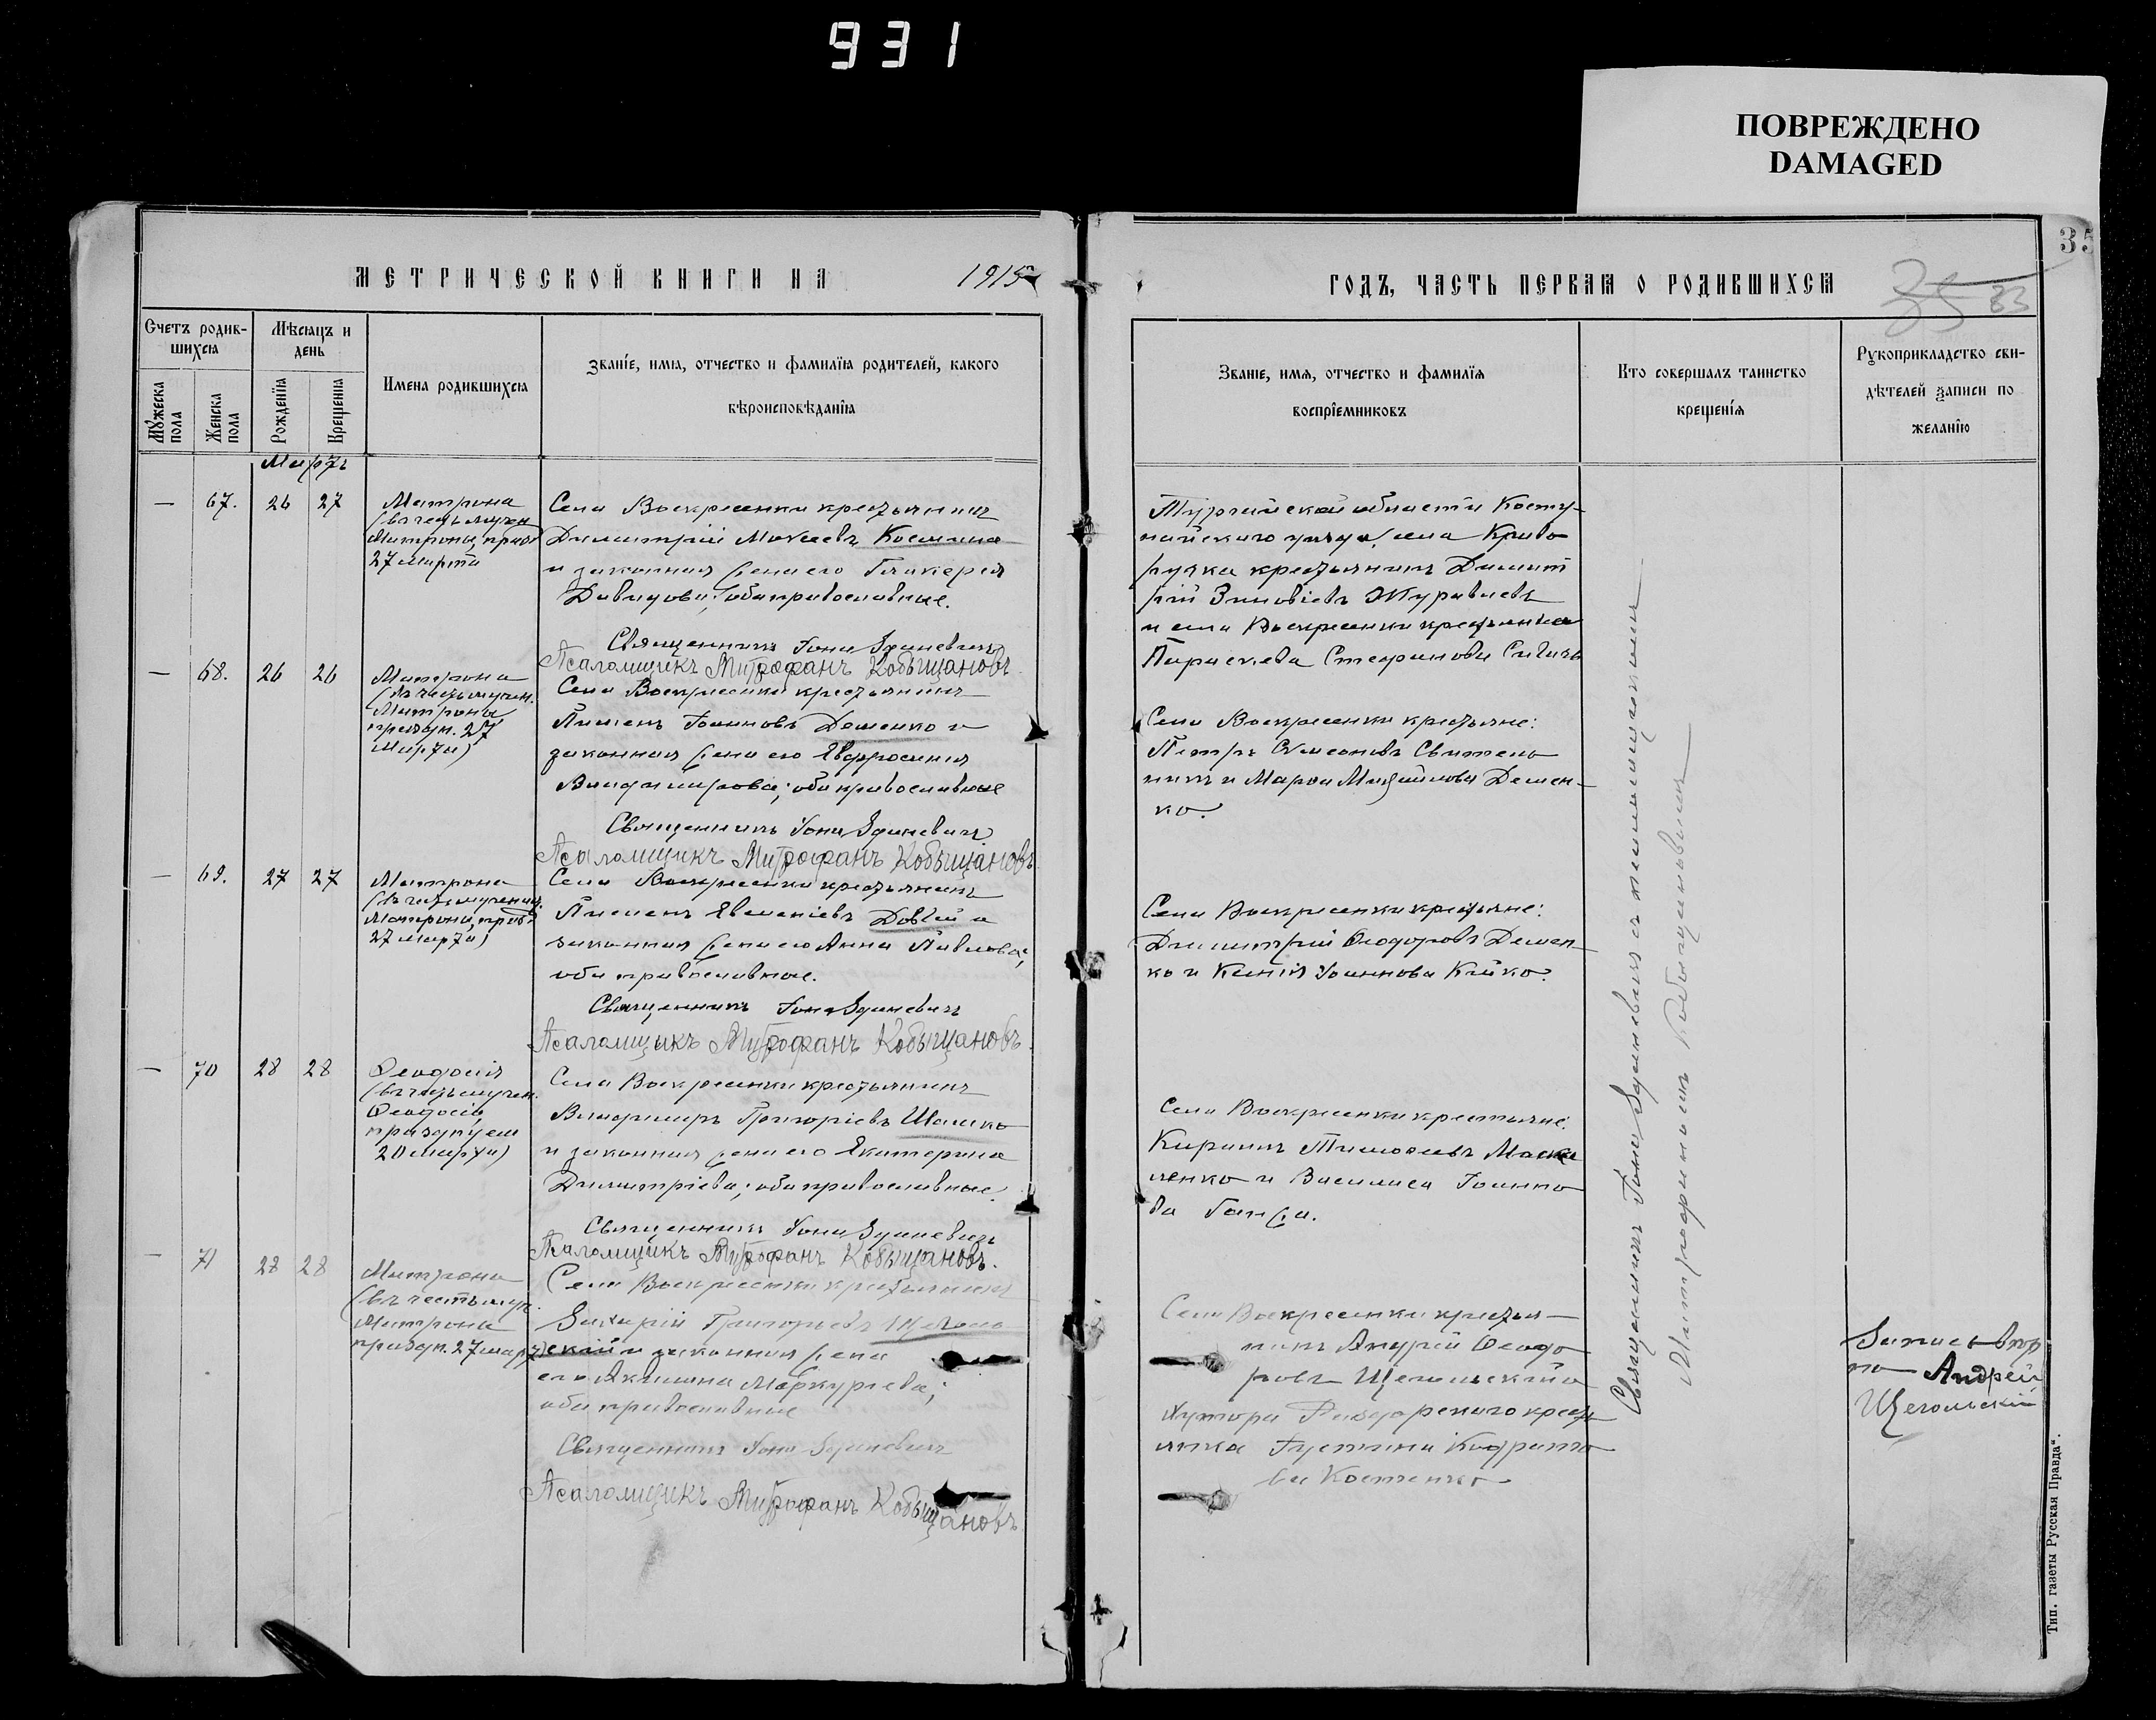 931
ПОВРЕЖДЕНО
DAMAGED
35
35 83
МЕТРИЧЕСКОЙ КНИГИ НА 1915
ГОДЪ, ЧАСТЬ ПЕРВАЯ О РОДИВШИХСЯ
Счетъ родив-
шихся
Мужеска пола
Женска пола
Мѣсяцъ и
день
Рожденія
Крещенія
Имена родившихся
Званіе, имя, отчество и фамилія родителей, какого
вѣроисповѣданія
Званіе, имя, отчество и фамилія
воспріемниковъ
Кто совершалъ таинство
крещенія
Рукоприкладство сви-
дѣтелей записи по
желанію
Мартъ
— 67. 26 27
Матрона
(въ честь мучен.
Матроны, празд
27 марта
Села Воскресенки крестьянинъ
Димитрій Моѵсеевъ Космина
и законная жена его Гликерія
Давидова; оба православные.
Священникъ Іона Эданевичъ
Псаломщикъ Митрофанъ Кобыщановъ
Тургайской области Коста-
найскаго уѣзда, села Криво
ручка крестьянинъ Димит
рій Зиновіевъ Журавлевъ
и села Воскресенки крестьянка
Параскева Стефанова
— 68. 26 26
Матрона
(въ честь мучен.
Матроны
праздн. 27
марта)
Села Воскресенки крестьянинъ
Пименъ Іоанновъ Деменко и
законная жена его Евфросинія
Владимірова; оба православные
Священникъ Іона Эданевичъ
Псаломщикъ Митрофанъ Кобыщановъ
Села Воскресенки крестьяне:
Петръ Симеоновъ
и Марфа Михайлова Демен-
ко.
— 69. 27 27
Матрона
(въ честь мучениц.
Матроны, празд
27 марта)
Села Воскресенки крестьянинъ
Пименъ Евменіевъ Довгай и
законная жена его Анна Павлова;
оба православные.
Священникъ Іона Эданевичъ
Псаломщикъ Митрофанъ Кобыщановъ
Села Воскресенки крестьяне:
Димитрій Ѳеодоровъ Демен-
ко и Ксенія Іоаннова Кійко.
— 70 28 28
Ѳеодосія
(въ честь мучен.
Ѳеодосіи,
празднуем
20 марта)
Села Воскресенки крестьянинъ
Владиміръ Григоріевъ Шашко
и законная жена его Екатерина
Димитріева; оба православные.
Священникъ Іона Эданевичъ
Псаломщикъ Митрофанъ Кобыщановъ.
Села Воскресенки крестьяне:
Кириллъ Тимоѳеевъ
ленко и Василиса Іоанно
ва Ганжа.
— 71 28 28
Матрона
(въ честь муч.
Матроны
праздн. 27 март)
Села Воскресенки крестьянинъ
Захарій Григорьевъ Щеголь
скій и законная жена
его Акилина Меркурьева;
оба православные
Священникъ Іона Эданевичъ
Псаломщикъ Митрофанъ Кобыщановъ
Села Воскресенки крестья-
нинъ Андрей Ѳеодо
ровъ Щегольскій и
хутора крест
янка Іустина Кодрато
ва Костенко
Священникъ Іона Эданевичъ и псаломщикомъ
Митрофаномъ Кобыщановымъ
Запись вѣр
но Андрей
Щегольскій
Тип. газеты Русская Правда".